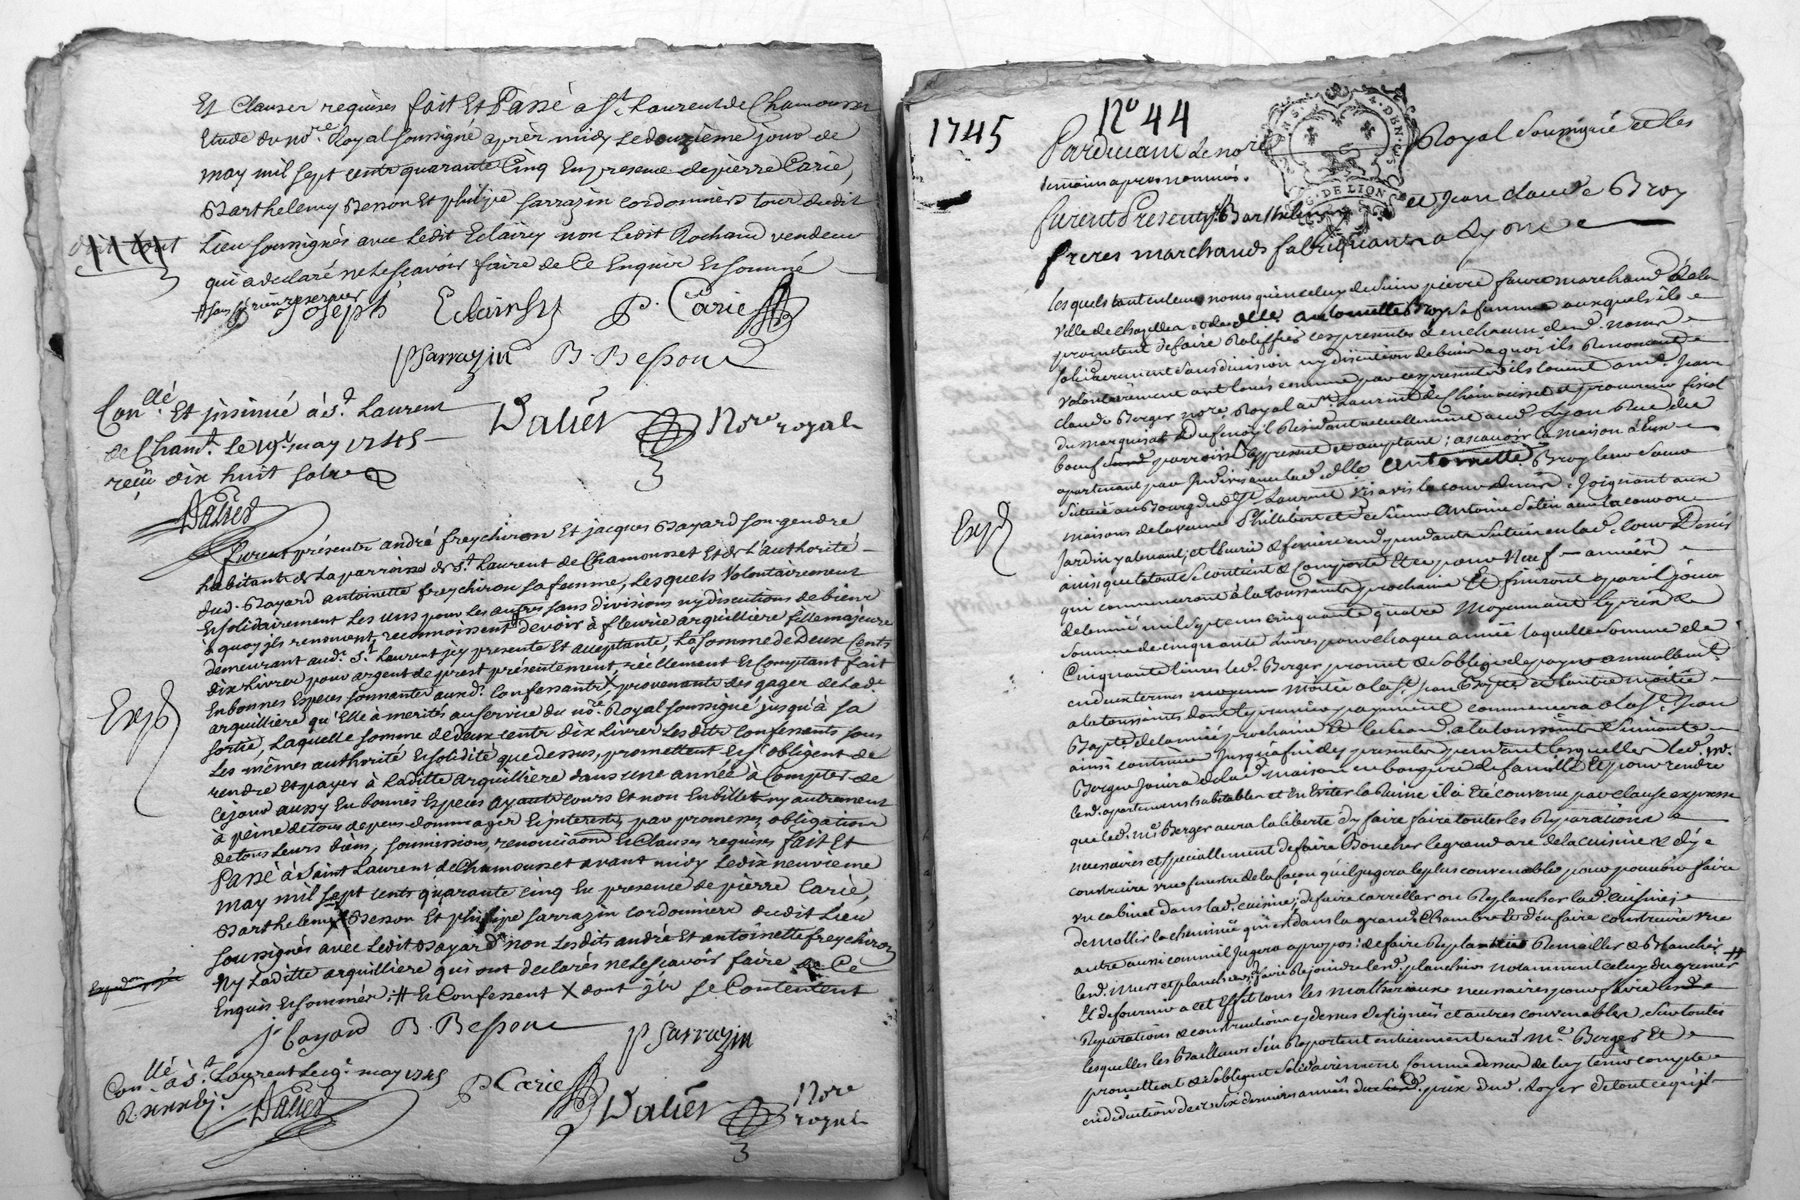 Et Clauses requises fait Et Passé a St. Laurent de Chamousset
Etude du nore. Royal soussigné après midy le douzième jour de
may mil sept cents quarante Cinq En presence de pierre Carie,
Barthelemy Besson Et philipe sarrazin cordonniers tous dudit
Lieu soussignés avec ledit Eclairsy non ledit Rochand vendeur
qui a declaré ne le scavoir faire de Ce Enquis Et sommé
# sans si rien reserver
Joseph Eclairsy P. Carie
P Sarrazin B. Besson
Conllé. Et insinué à St. Laurent
de Cham. le 19e. may 1745
reçu dix huit sols
Dalier Nore royal
Dalier
furent présents andré freychiron Et jacques Bayard son gendre
habitants de La parroisse de St. Laurent de Chamousset Et de L'authorité
dud. Bayard antoinette freychiron sa femme, Lesquels Volontairement
Et solidairement Les uns pour les autres sans divisions ny discutions de biens
à quoy ils renoncent, reconnoissent devoir à fleurie arquilliere fille majeure
demeurant aud. St. Laurent icy presente Et acceptante, La somme de Deux Cents
dix Livres pour argent de prest présentement réellement Et Comptant fait
En bonnes Espèces sonnantes auxd. Confessants X provenante des gages de Lade.
arquilliere qu'Elle à merités au service du nore. Royal soussigné jusqu'à sa
sortie, Laquelle somme de deux cents dix Livres Les dits Confessants sous
Les mêmes authorité Et solidité que dessus, promettent Et s'obligent de
rendre Et payer à Laditte arquilliere dans une année à Compter de
Ce jour aussy En bonnes Especes ayants cours Et non En billets ny autrement
à peine de tous depens dommages Et interests, par promesses obligation
de tous Leurs biens, soumissions, renonciaõns Et Clauses requises fait Et
Passé à Saint Laurent de Chamousset avant midy Le dix neuvieme
may mil sept cents quarante cinq En presence de pierre Carie,
Barthelemy Besson Et philipe sarrazin cordonniers dudit Lieu
soussignés avec Ledit Bayard non Les dits andré Et antoinette freychiron
Ny Laditte arquilliere qui ont declarés ne le scavoir faire de Ce
Enquis Et sommés: # Et Confessent X dont ils se Contentent
Exp
j. bayard B. Besson P Sarrazin
Conllé. à St. Laurent Le 19e. may 1745
R. P. Carie
Dalier Dalier Nore royal
1745
No 44
Pardevant Le nore Royal Soussigné et les
temoins apres nommés.
furent Presents Barthelemy et Jean Claude Broy
freres marchands fabriquants a Lyon
lesquels tant en leurs noms qu'en celuy de Sieur pierre favre marchand de la
Ville de Chazelles et de dlle. antoinette Broy sa femme auxquels ils
promettent de faire Ratiffier ces presentes et en chacun desd. noms
solidairement sans division ny discution de biens a quoy ils Renoncent
volontairement ont loués comme par ces presentes ils louent a me. Jean
claude Berger nore Royal a St. Laurent de Chamousset et procureur fiscal
du marquisat Residant actuellement aud. Lyon Rue du
boeuf parroisse present et acceptant; ascavoir la maison a eux
apartenant par Indivis avec lad. dlle antoinette Broy leur soeur
Située au Bourg dud. St. Laurent vis avis la cour; Joignant aux
maisons de la veuve Philibert et de Sieur Antoine avec la cour
Jardin y atenant; et en dependants
ainsi que le tout se contient & comporte Et ce pour Neuf années
qui commenceront à la toussaint prochaine Et finiront a pareil jour
de lannée mil sept cens cinquante quatre Moyennant le prix &
somme de cinquante Livres pour chaque année laquelle somme de
Cinquante livres led. Berger promet & s'oblige de payer annuellement
en deux termes moitié a la St. Jean Baptte et l'autre moitié
a la toussaints dont le premier payement commencera a la St. Jean
Bapte. de lannée prochaine Et le second a la toussaint suivante
ainsi continuer jusqu'a fin des presentes pendant lesquelles led. me.
Berger Jouira de lad. maison en bon pere de famille Et pour rendre
led. apartemens habitables et En Eviter la Ruine il a Eté convenu par clause expresse
que led. me Berger aura la liberté d'y faire faire toutes les Reparations
necessaires et specialement de faire Boucher le grand arc de la cuisine & d'y
construire une fenetre de la façon qu'il jugera le plus convenable pour pouvoir faire
un cabinet dans lad. cuisine; de faire carreller ou Replancher lad. cuisine,
demollir la cheminée qui est dans la grande Chambre Et d'en faire construire une
autre aussi comme il Jugera a propos; de faire Replatrir & Blanchir
lesd. murs et planchers; faire Rejoindre lesd. planchers notamment celuy du grenier #
Et de fournir a cet Effet tous les matheriaux necessaires pour faire lesd.
Reparations & constructions cy dessus designées et autres convenables. sur toutes
lesquelles les Bailleurs s'en Raportent entierement aud. Me. Berger Et
promettent & s'obligent solidairement comme dessus de luy tenir compte
en deduction des six dernieres années du prix dud. loyer de tout ce qu'il
Exp